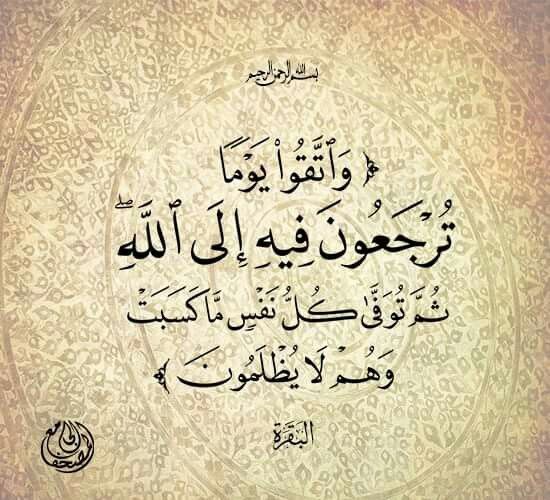 بسم الله الرحمن الرحيم
﴿ وَٱتَّقُوا۟ يَوْمًا
تُرْجَعُونَ فِيهِ إِلَى ٱللَّهِ ۖ
ثُمَّ تُوَفَّىٰ كُلُّ نَفْسٍ مَّا كَسَبَتْ
وَهُمْ لَا يُظْلَمُونَ ﴾
البقرة
المصحف الجامع